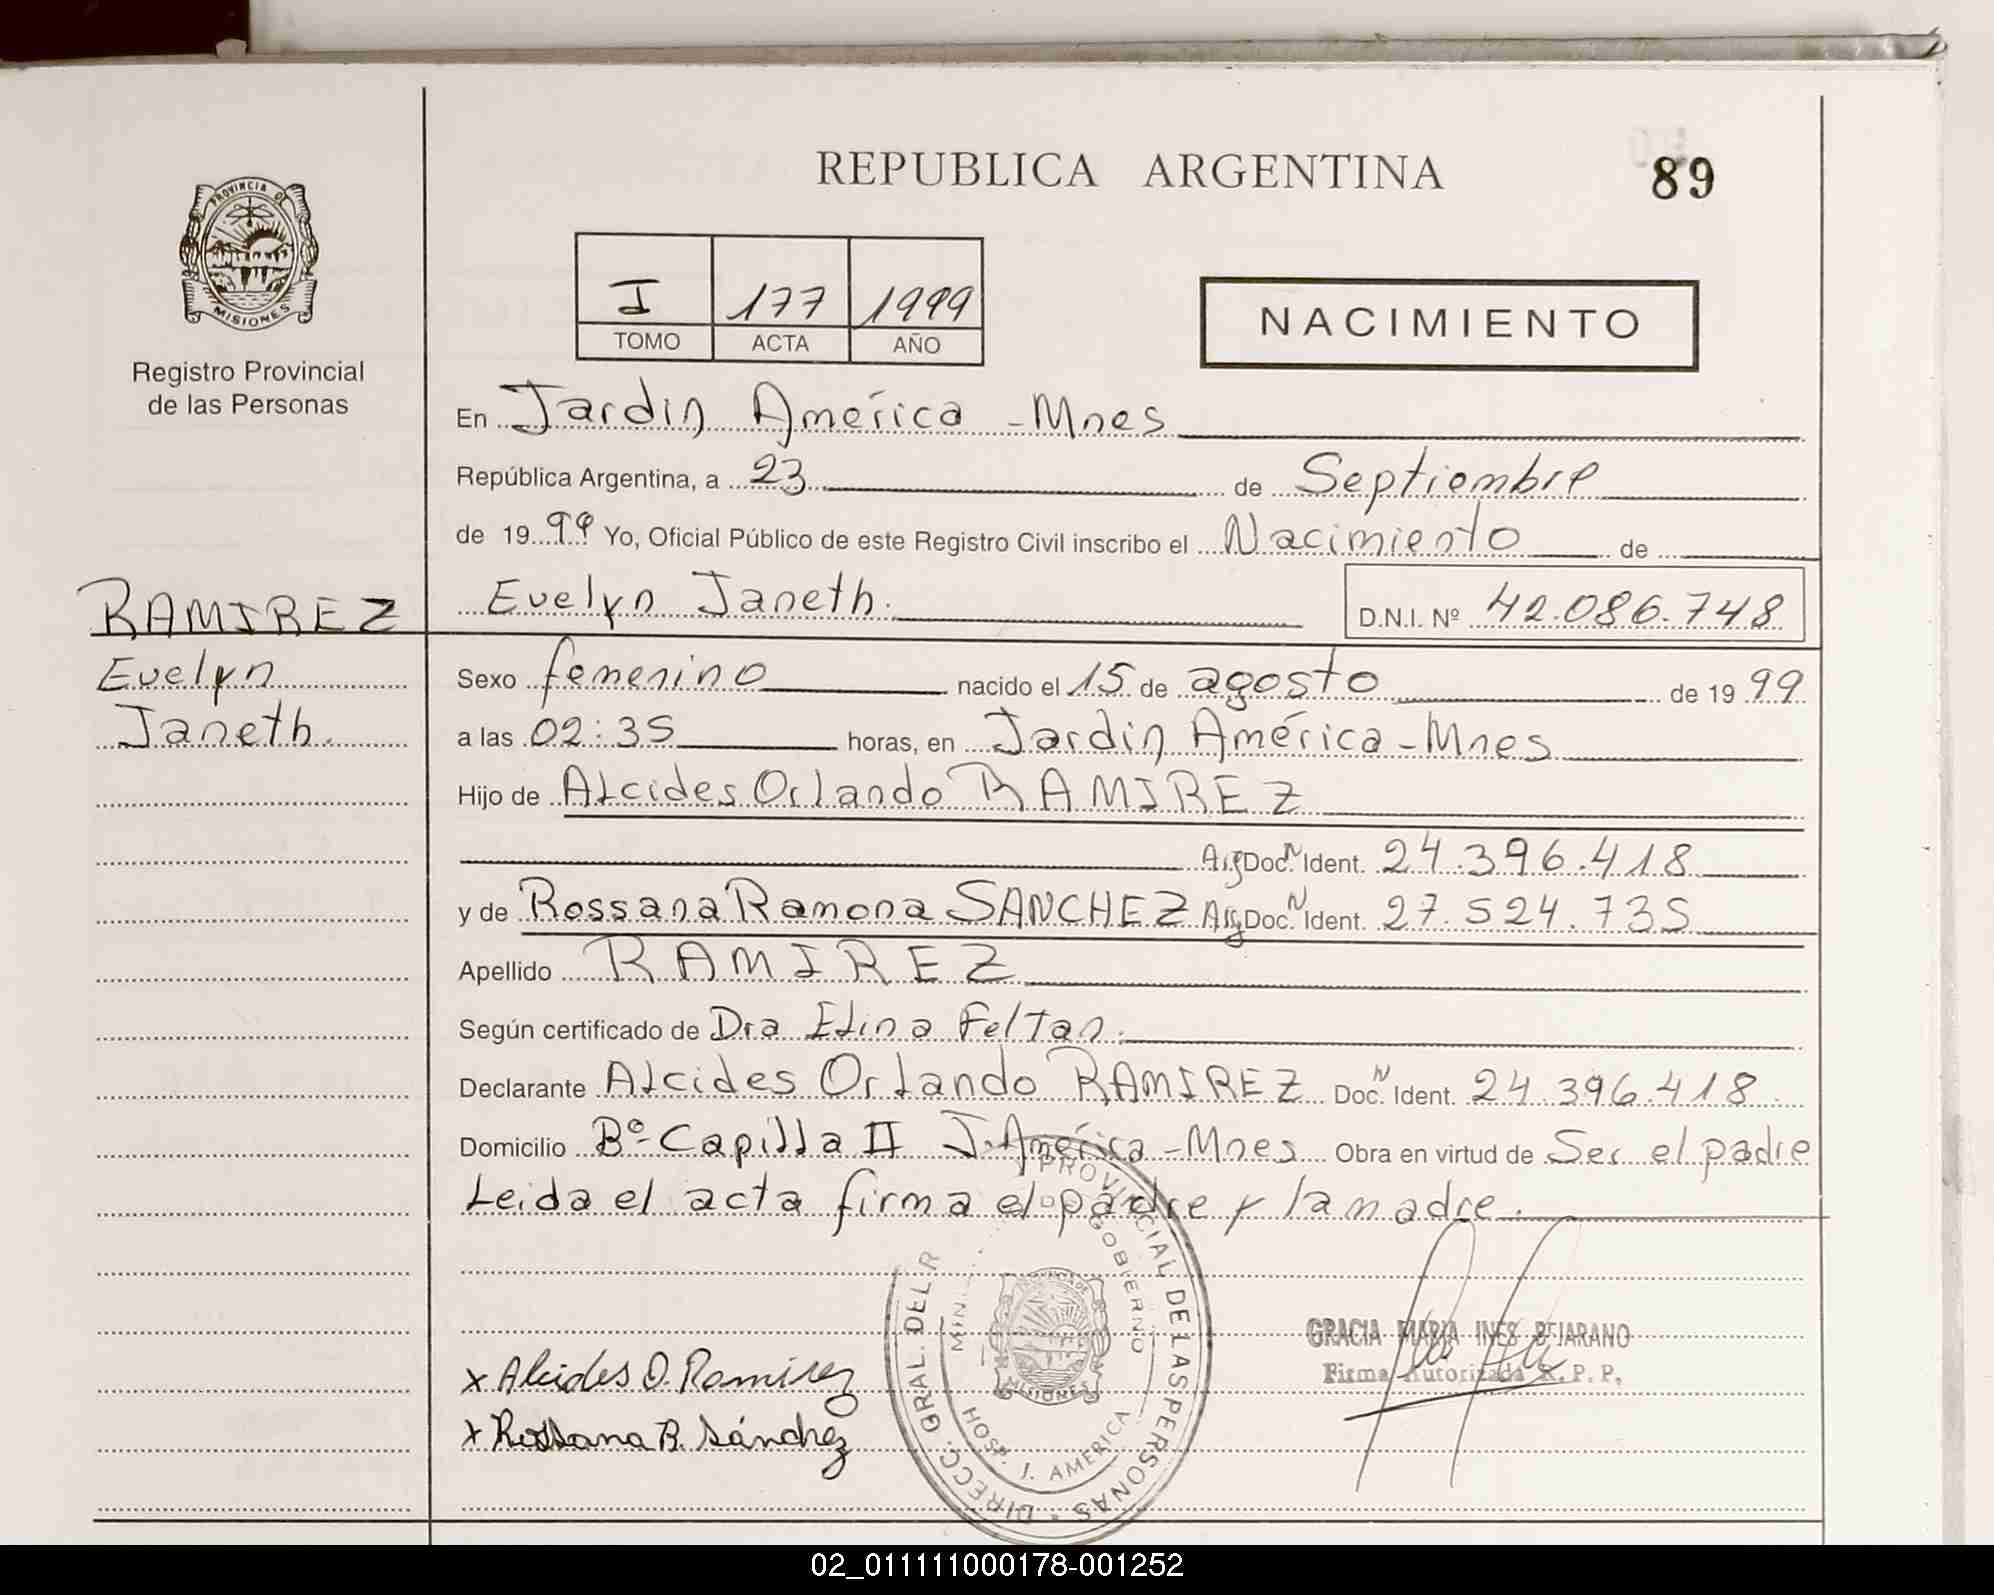 REPUBLICA ARGENTINA
89
PROVINCIA DE
MISIONES
Registro Provincial
de las Personas
I 177 1999
TOMO ACTA AÑO
NACIMIENTO
En Jardin América - Mnes
República Argentina, a 23 de Septiembre
de 1999 Yo, Oficial Público de este Registro Civil inscribo el Nacimiento de
Evelyn Janeth. D.N.I. Nº 42.086.748
RAMIREZ
Evelyn
Janeth.
Sexo femenino nacido el 15 de agosto de 1999
a las 02:35 horas, en Jardin América - Mnes
Hijo de Alcides Orlando RAMIREZ
Arg Doc. N Ident. 24.396.418
y de Rossana Ramona SANCHEZ Arg Doc. N Ident. 27.524.735
Apellido RAMIREZ
Según certificado de Dra Elina Feltan.
Declarante Alcides Orlando RAMIREZ Doc. N Ident. 24.396.418
Domicilio Bº- Capilla II J. América - Mnes Obra en virtud de Ser el padre
Leida el acta firma el padre y la madre.
DIRECC. GRAL. DEL R PROVINCIAL DE LAS PERSONAS
MIN GOBIERNO
MISIONES
HOSP. J. AMERICA
GRACIA MARIA INES BEJARANO
Firma Autorizada R. P. P.
x Alcides O. Ramirez
x Rossana R. Sánchez
02_011111000178-001252